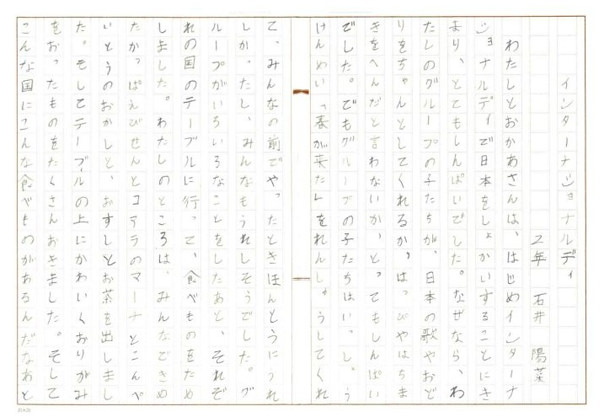 インターナショナルディ
2年 石井 陽菜
わたしとおかあさんは、はじめインターナ
ショナルディで日本をしょかいすることにき
まり、とてもしんぱいでした。なぜなら、わ
たしのグループの子たちが、日本の歌やおど
りをちゃんとしてくれるか、はっぴやはちま
きをへんだと言わないか、とってもしんぱい
でした。でもグループの子たちはいっしょう
けんめい「春が来た」をれんしゅうしてくれ
て、みんなの前でやったときほんとうにうれ
しかったし、みんなもうれしそうでした。グ
ループがいろいろなことをしたあと、それぞ
れの国のテーブルに行って、食べものをため
しました。わたしのところは、みんなできめ
たかっぱえびせんとコアラのマーチとこんぺ
いとうのおかしと、おすしとお茶を出しまし
た。そしてテーブルの上にかわいくおりがみ
をおったものをたくさんおきました。そして
こんな国にこんな食べものがあるんだなあと